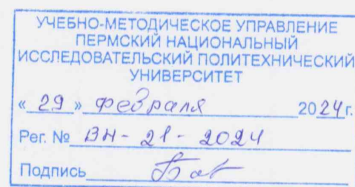 УЧЕБНО-МЕТОДИЧЕСКОЕ УПРАВЛЕНИЕ
ПЕРМСКИЙ НАЦИОНАЛЬНЫЙ
ИССЛЕДОВАТЕЛЬСКИЙ ПОЛИТЕХНИЧЕСКИЙ
УНИВЕРСИТЕТ
« 29 » февраля 2024 г.
Рег. № ВН-21-2024
Подпись